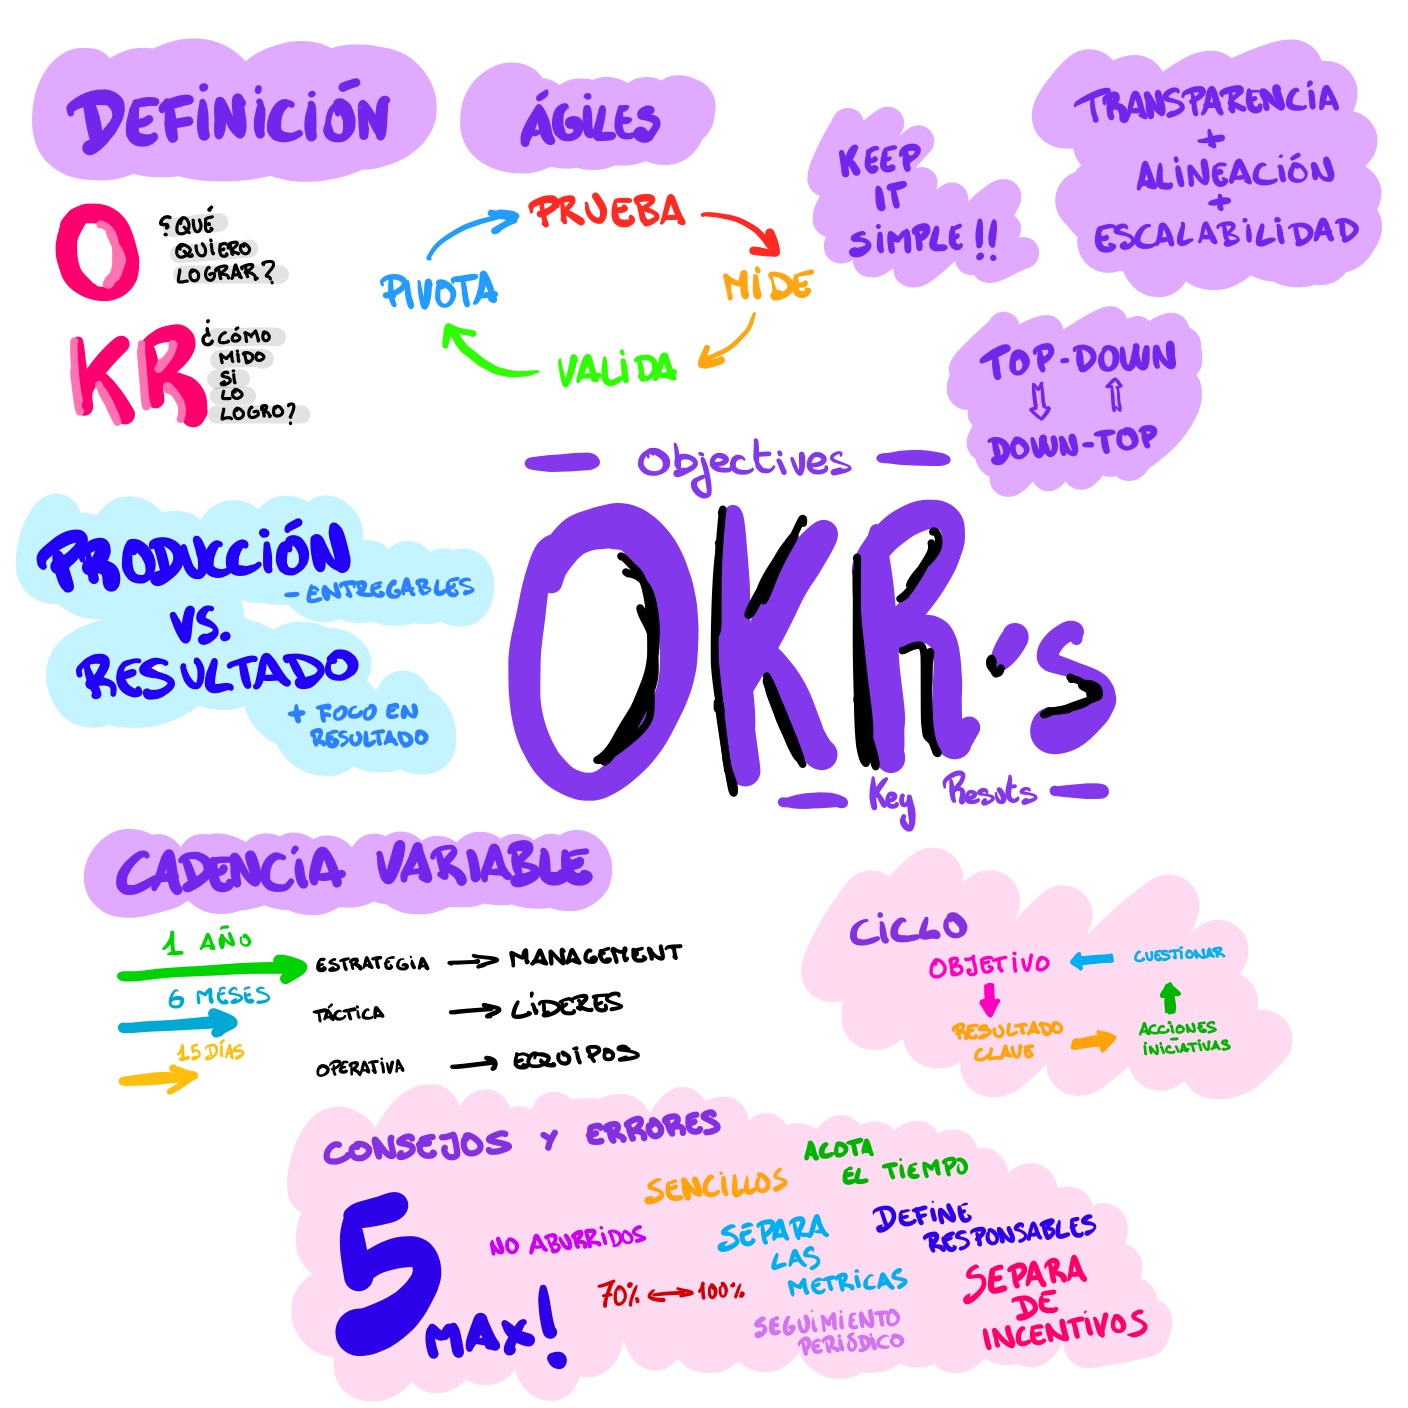 DEFINICIÓN
O
¿QUÉ
QUIERO
LOGRAR?
KR
¿CÓMO
MIDO
SI
LO
LOGRO?
ÁGILES
PRUEBA
MIDE
VALIDA
PIVOTA
KEEP
IT
SIMPLE!!
TRANSPARENCIA
+
ALINEACIÓN
+
ESCALABILIDAD
TOP-DOWN
DOWN-TOP
Objectives
OKR's
Key Resuts
PRODUCCIÓN
- ENTREGABLES
VS.
RESULTADO
+ FOCO EN
RESULTADO
CADENCIA VARIABLE
1 AÑO
ESTRATEGIA → MANAGEMENT
6 MESES
TÁCTICA → LÍDERES
15 DÍAS
OPERATIVA → EQUIPOS
CICLO
OBJETIVO
CUESTIONAR
RESULTADO
CLAVE
ACCIONES
-
INICIATIVAS
CONSEJOS Y ERRORES
5
MAX!
NO ABURRIDOS
SENCILLOS
ACOTA
EL TIEMPO
SEPARA
LAS
METRICAS
DEFINE
RESPONSABLES
70% ↔ 100%
SEGUIMIENTO
PERIÓDICO
SEPARA
DE
INCENTIVOS